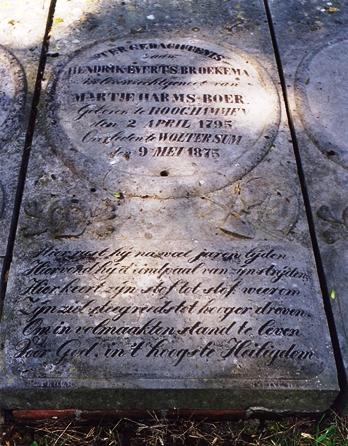 TER GEDACHTENIS
aan
HENDRIK EVERTS BROEKEMA
in leven echtgenoot van
MARTJE HARMS BOER.
Geboren te HOOGHAMMEN
den 2 APRIL 1795
Overleden te WOLTERSUM
den 9 MEI 1875
Hier rust hij na zoveel jaren lijden
Hier vond hij d' eindpaal van zijn strijden
Hier keert zijn stof tot stof weerom
Zijn ziel steegreeds tot hooger dreven
Om in volmaakten stand te leven
Voor God, in 't hoogste Heiligdom